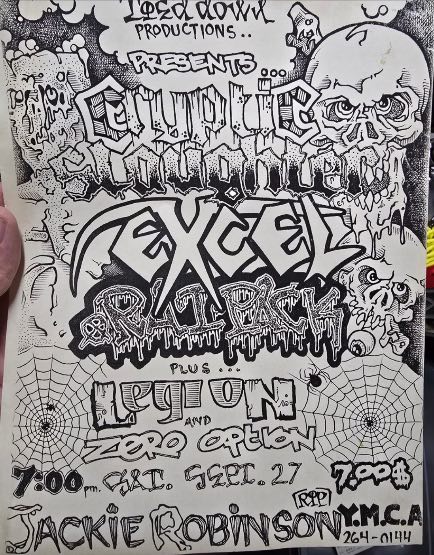 down
PRODUCTIONS..
PRESENTS...
Cryptic
Slaughter
EXCEL
RAT PACK
PLUS...
Legion
AND
Zero Option
7:00 pm. SAT. SEPT. 27 7.00$
RIP
JACKIE ROBINSON Y.M.C.A
264-0144